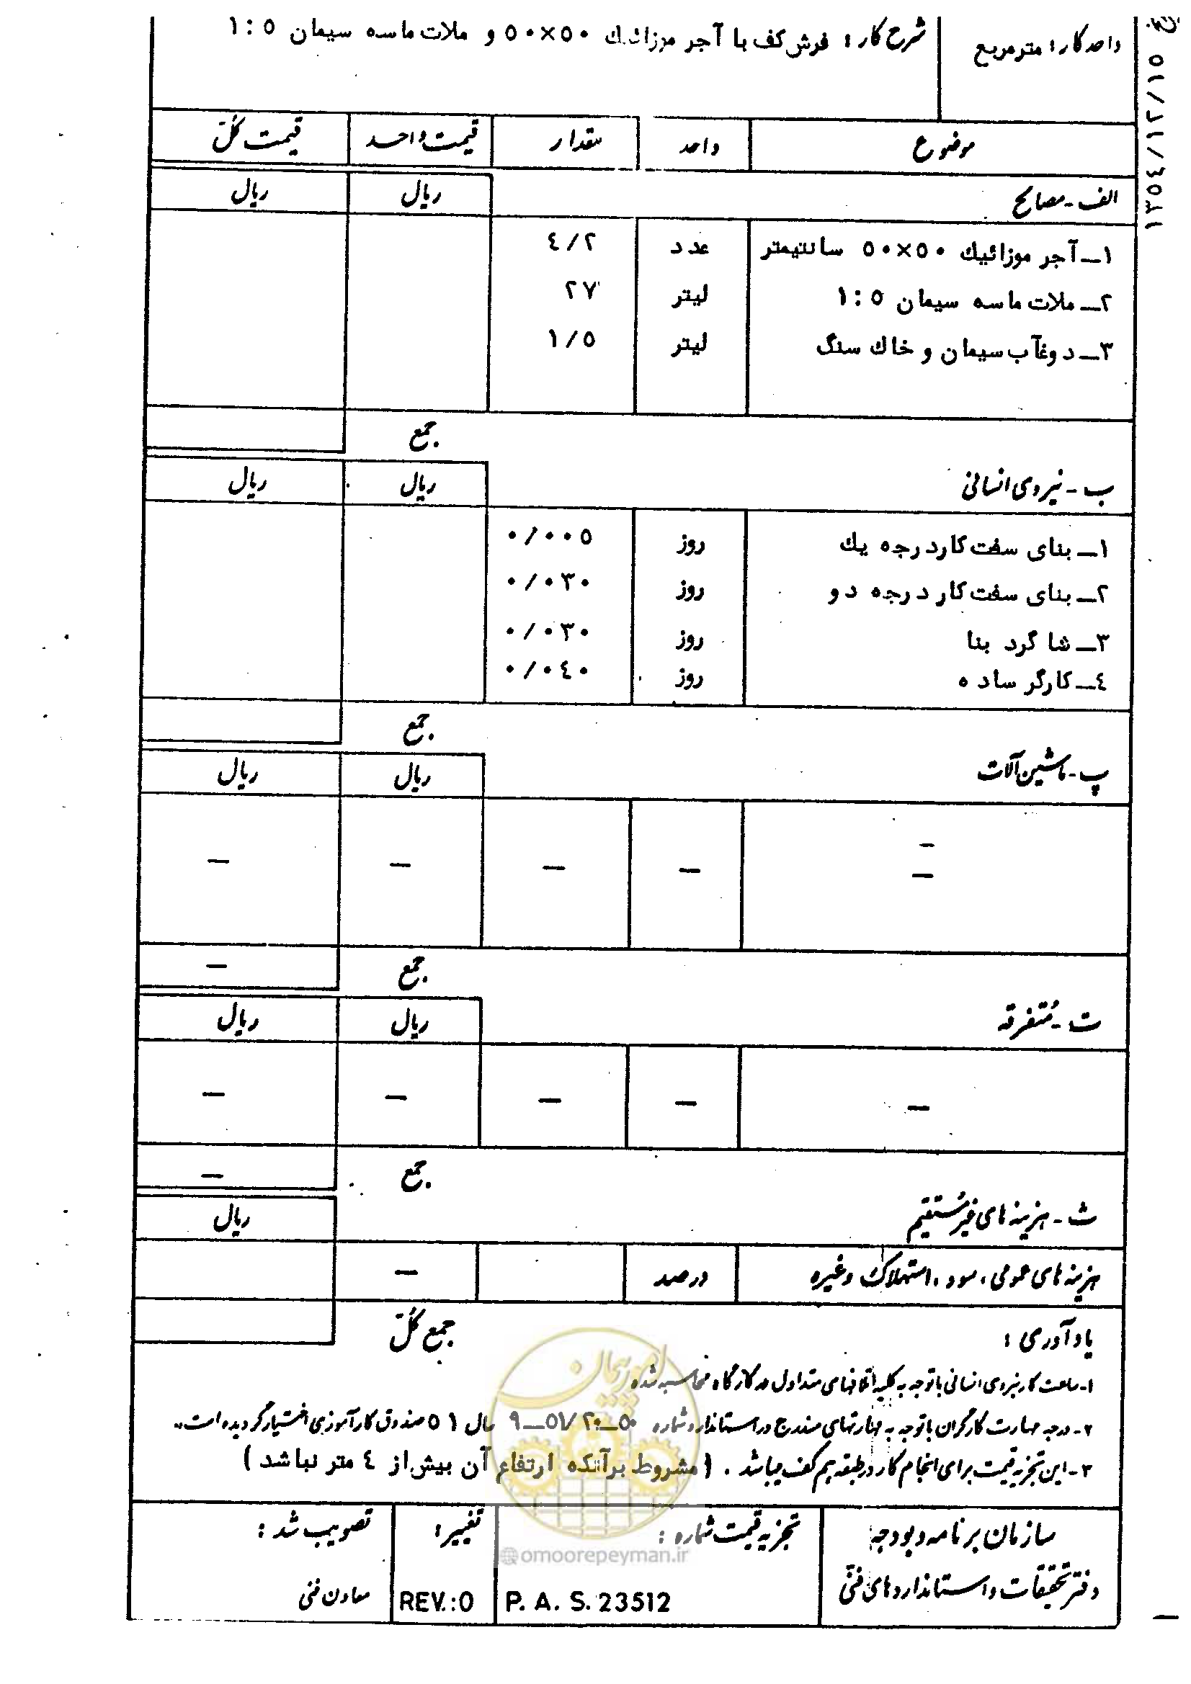 واحد کار: مترمربع
شرح کار: فرش کف با آجر موزائیك ۵۰×۵۰ و ملات ماسه سیمان ۱:۵
۱۳۵٤/۱۲/۱۵
موضوع واحد مقدار قیمت واحد قیمت کُلّ
الف - مصالح ریال ریال
۱ــ آجر موزائیك ۵۰×۵۰ سانتیمتر عدد ٤/۲
۲ــ ملات ماسه سیمان ۱:۵ لیتر ۲۷
۳ــ دوغآب سیمان و خاك سنگ لیتر ۱/۵
جمع
ب - نیروی انسانی ریال ریال
۱ــ بنای سفت کار درجه یك روز ۰/۰۰۵
۲ــ بنای سفت کار درجه دو روز ۰/۰۳۰
۳ــ شاگرد بنا روز ۰/۰۳۰
٤ــ کارگر ساده روز ۰/۰٤۰
جمع
پ - ماشین آلات ریال ریال
ـ
ـ ـ ـ ـ ـ
جمع ـ
ت - مُتفرقه ریال ریال
ـ ـ ـ ـ ـ
جمع ـ
ث - هزینه های غیر مُستقیم ریال
هزینه های عمومی ، سود ، استهلاک وغیره درصد ـ
جمع کُلّ
یادآوری :
۱- ساعت کار نیروی انسانی با توجه به کلیه اتلافهای متداول در کارگاه محاسبه شده
۲- درجه مهارت کارگران با توجه به مهارتهای مندرج در استاندارد شماره ۵۰ــ۵۱/۲۰ــ۹ سال ۵۱ صندوق کارآموزی اختیار گردیده است.
۳- این تجزیه قیمت برای انجام کار در طبقه هم کف میباشد . (مشروط برآنکه ارتفاع آن بیش از ٤ متر نباشد )
سازمان برنامه و بودجه
دفتر تحقیقات و استانداردهای فنّی
تجزیه قیمت شماره :
P. A. S. 23512
تغییر:
REV.:0
تصویب شد :
معاون فنی
امور پیمان
@omoorepeyman.ir